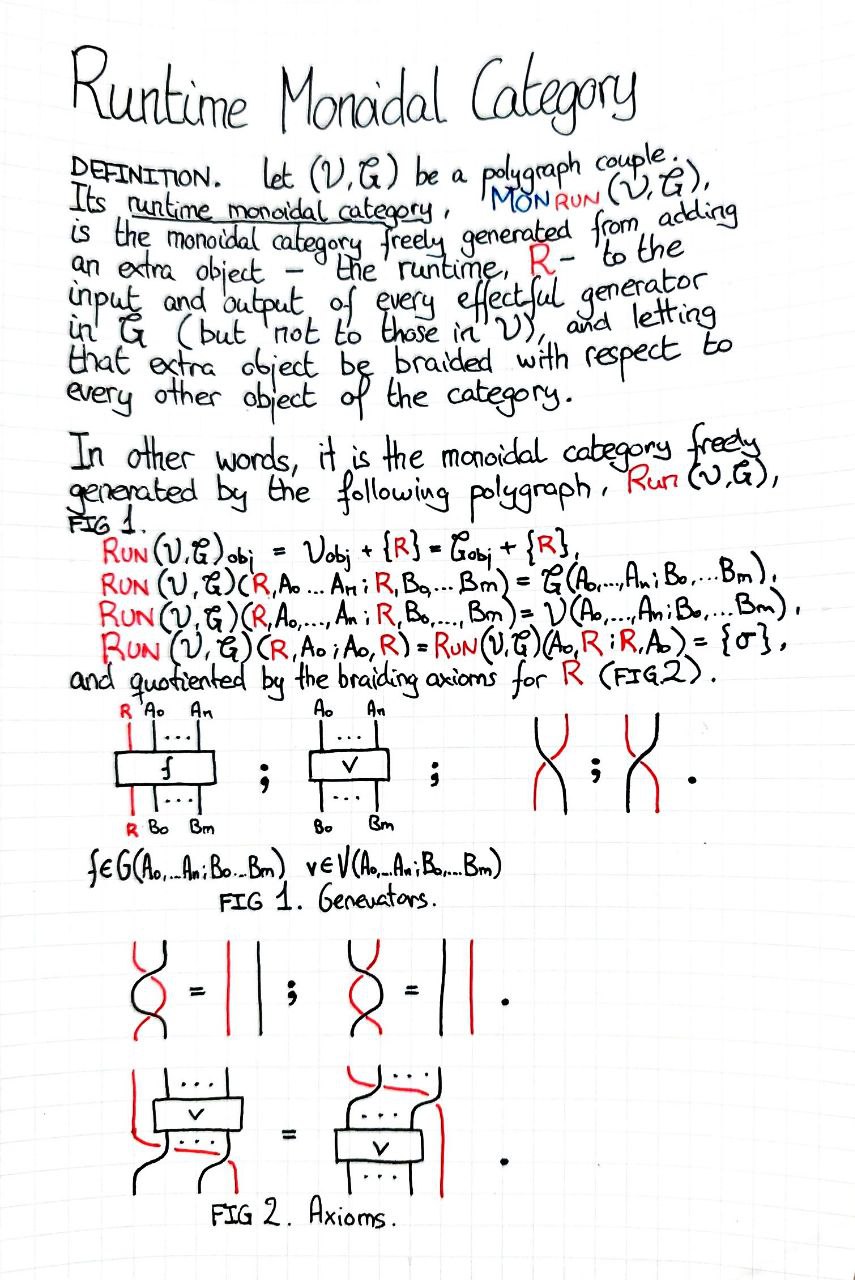 Runtime Monoidal Category
DEFINITION. Let (V,G) be a polygraph couple.
Its runtime monoidal category, MON RUN (V,G),
is the monoidal category freely generated from adding
an extra object – the runtime, R – to the
input and output of every effectful generator
in G (but not to those in V), and letting
that extra object be braided with respect to
every other object of the category.
In other words, it is the monoidal category freely
generated by the following polygraph, Run (V,G),
FIG 1.
RUN(V,G)obj = Vobj + {R} = Gobj + {R},
RUN (V,G)(R,Ao...An; R,Bo,...Bm) = G(Ao,...,An; Bo,...Bm),
RUN(V,G)(R,Ao,...,An; R,Bo,...,Bm) = V(Ao,...,An; Bo,...Bm),
RUN (V,G)(R,Ao; Ao,R) = RUN(V,G)(Ao,R; R,Ao) = {σ},
and quotiented by the braiding axioms for R (FIG.2).
R Ao An Ao An
... ...
f ; v ; ; .
... ...
R Bo Bm Bo Bm
f∈G(Ao,...An; Bo...Bm) v∈V(Ao,...An; Bo,...Bm)
FIG 1. Generators.
= ; = .
... ...
v = ...
... v .
...
FIG 2. Axioms.